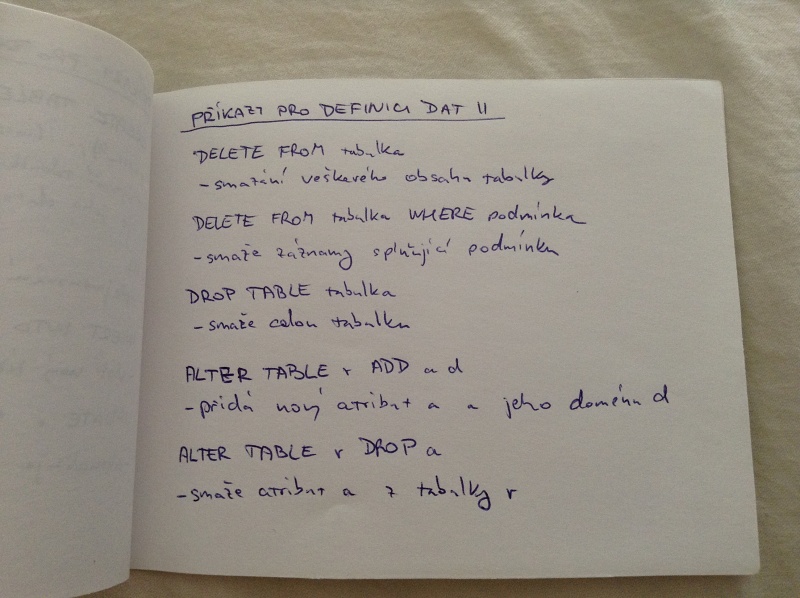 PŘÍKAZY PRO DEFINICI DAT II
DELETE FROM tabulka
- smazání veškerého obsahu tabulky
DELETE FROM tabulka WHERE podmínka
- smaže záznamy splňující podmínku
DROP TABLE tabulka
- smaže celou tabulku
ALTER TABLE r ADD a d
- přidá nový atribut a a jeho doménu d
ALTER TABLE r DROP a
- smaže atribut a z tabulky r